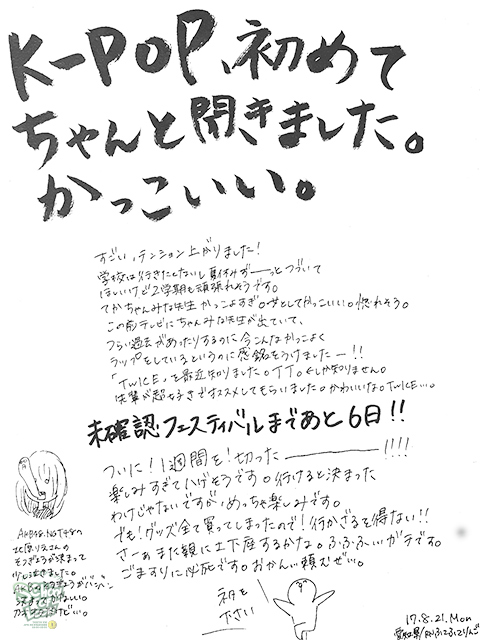 K-POP、初めて
ちゃんと聞きました。
かっこいい。
すごい、テンション上がりました!
学校は行きたくないし夏休みずーっとつづいて
ほしいけど2学期も頑張れそうです。
てかちゃんみな先生かっこよすぎ。女としてかっこいい。惚れそう。
この前テレビにちゃんみな先生が出ていて、
つらい過去があったりするのに今こんなかっこよく
ラップをしているというのに感銘をうけましたー!!
「TWICE」を最近知りました。TT。しか知りません。
先輩が超好きでオススメしてもらいました。かわいいな。TWICE…。
未確認フェスティバルまであと6日!!
ついに!1週間を!切った――!!!!
楽しみすぎてハゲそうです。行けると決まった
わけじゃないですが、めっちゃ楽しみです。
でも!グッズ全て買ってしまったので!行かざるを得ない!!
さーぁまた親に土下座するかな。ふふふ、いガチです。
ごますりに必死です。おかん、頼むぜぃ…。
AKB48、NGT48の
北原りえさんの
そつぎょうが決まって
少し泣きました。
決まって
かなしい。
初を
下さい
17.8.21.Mon
愛知県/RNふでふでりんご